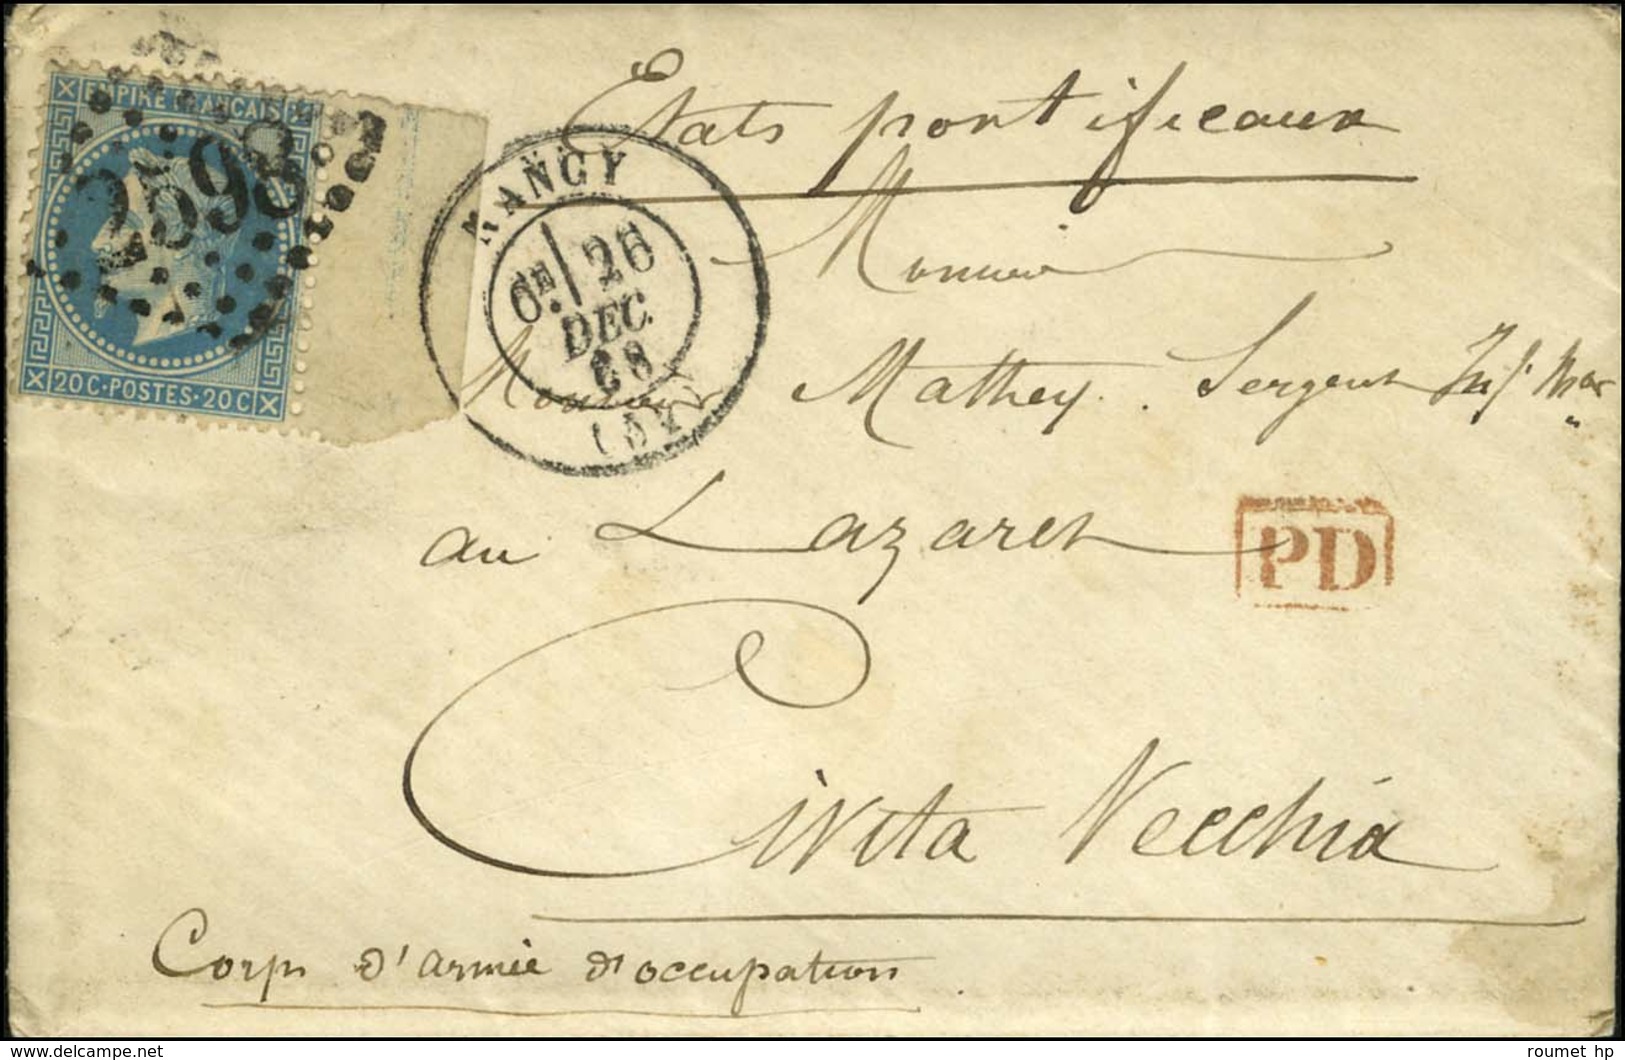 États pontificaux
EMPIRE FRANCAIS
2598
20 C · POSTES · 20 C
NANCY
6E 26
DEC.
68
(52)
Monsieur
Monsieur Mathey. Sergent Inf. Mar
au Lazaret
PD
Civita Vecchia
Corps d'armée d'occupation
roumet hp